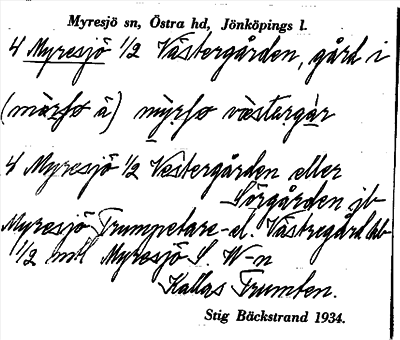 Myresjö sn, Östra hd, Jönköpings l.
4 Myresjö 1/2 Västergården, gård i
4 Myresjö 1/2 Vestergården eller
Sörgården jb
Myresjö Trumpetare- el. Västregård db
1/2 mtl Myresjö S. W-n
Kallas Trumpen.
Stig Bäckstrand 1934.